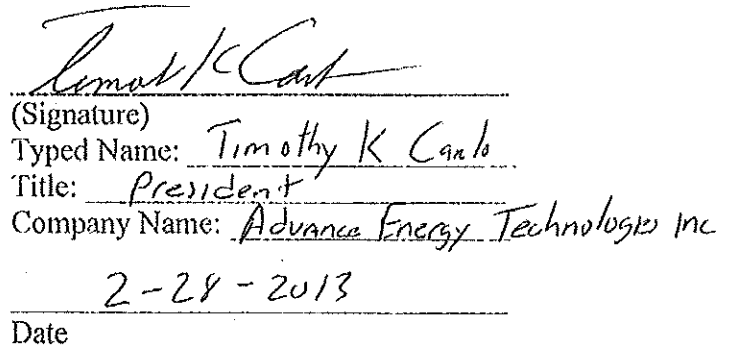 (Signature)
Typed Name: Timothy K Carlo
Title: President
Company Name: Advance Energy Technologies Inc
2-28-2013
Date